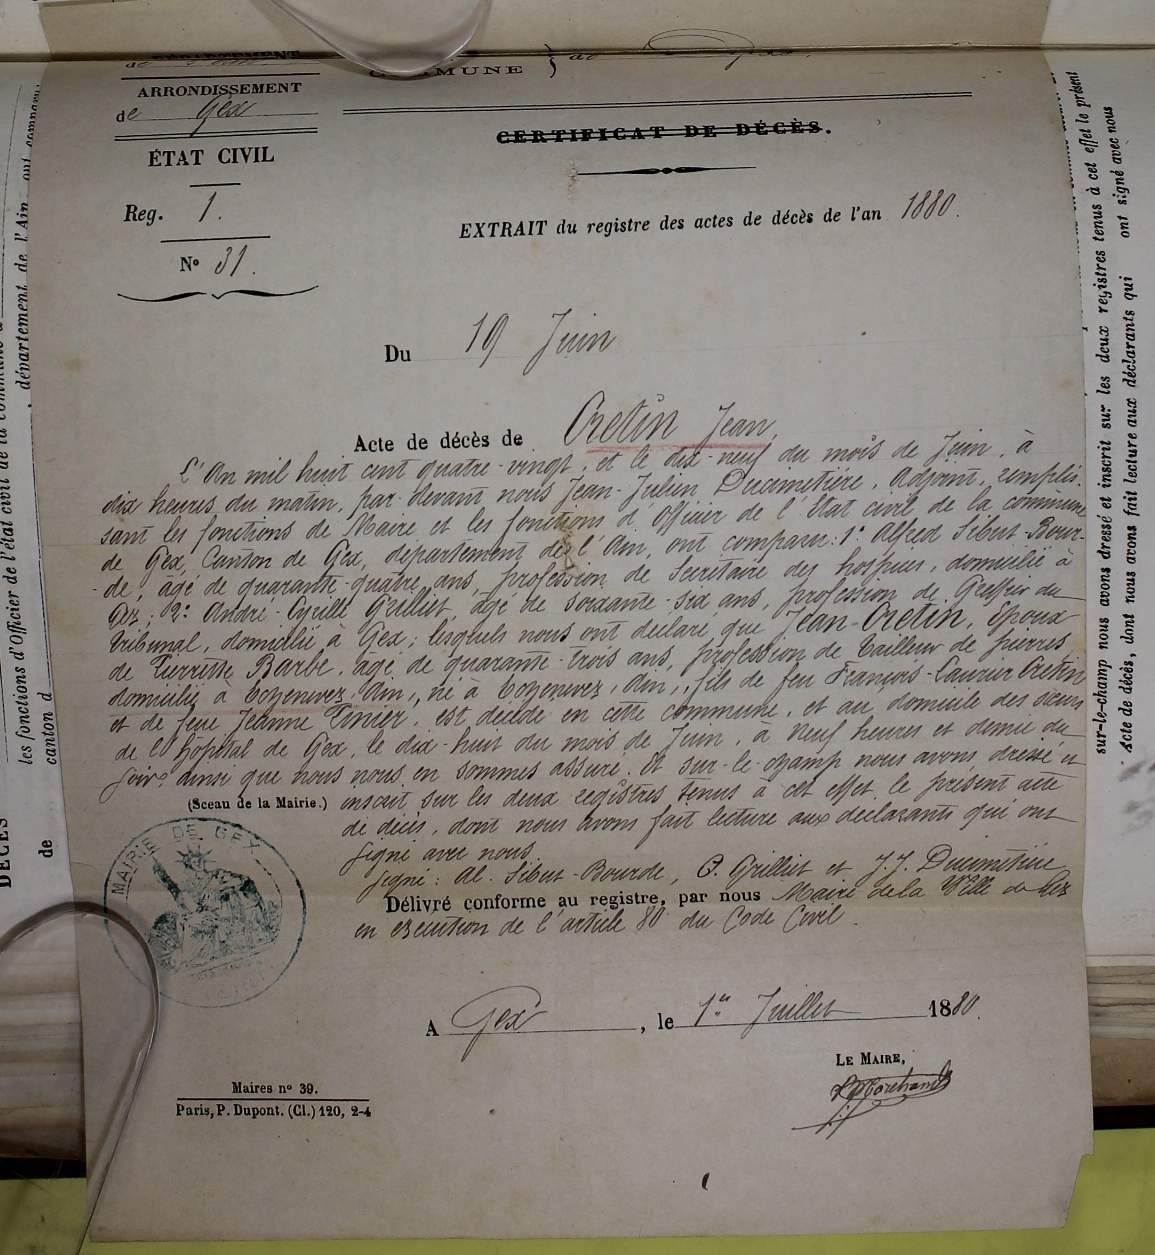 DÉPARTEMENT
de
ARRONDISSEMENT
de Gex
COMMUNE } de
ÉTAT CIVIL
Reg. 1.
N° 31.
CERTIFICAT DE DÉCÈS.
EXTRAIT du registre des actes de décès de l'an 1880.
Du 19 Juin
Acte de décès de Cretin Jean,
L'An mil huit cent quatre-vingt, et le dix-neuf du mois de Juin, à
dix heures du matin, par-devant nous Jean-Julien Ducimetière, Adjoint, remplis-
sant les fonctions de Maire et les fonctions d'Officier de l'Etat civil de la commune
de Gex, Canton de Gex, département de l'Ain, ont comparu: 1° Alfred Sibut-Bour-
-de, âgé de quarante-quatre ans, profession de Secrétaire des hospices, domicilié à
Gex; 2° André-Cyrille Grillet, âgé de soixante-six ans, profession de Greffier du
tribunal, domicilié à Gex; lesquels nous ont déclaré que Jean-Cretin, Epoux
de Pierrette Barbe, âgé de quarante-trois ans, profession de tailleur de pierres
domicilié à Cozenevez, Ain, né à Cozenevez, Ain, fils de feu François-Cretin
et de feue Jeanne Tinier, est décédé en cette commune, et au domicile des sœurs
de l'hôpital de Gex, le dix-huit du mois de Juin, à neuf heures et demie du
soir, ainsi que nous nous en sommes assuré. Et sur-le-champ nous avons dressé et
(Sceau de la Mairie.) inscrit sur les deux registres tenus à cet effet le présent acte
de décès, dont nous avons fait lecture aux déclarants qui ont
signé avec nous
signé: Al. Sibut-Bourde, C. Grillet et J. J. Ducimetière
Délivré conforme au registre, par nous Maire de la Ville de Gex
en exécution de l'article 80 du Code Civil.
MAIRIE DE GEX
A Gex, le 1er Juillet 1880.
LE MAIRE,
Maires n° 39.
Paris, P. Dupont. (Cl.) 120, 2-4
DÉCÈS
de
les fonctions d'Officier de l'état civil de la commune d
canton d
, département de l'Ain, ont comparu
sur-le-champ nous avons dressé et inscrit sur les deux registres tenus à cet effet le présent
Acte de décès, dont nous avons fait lecture aux déclarants qui ont signé avec nous